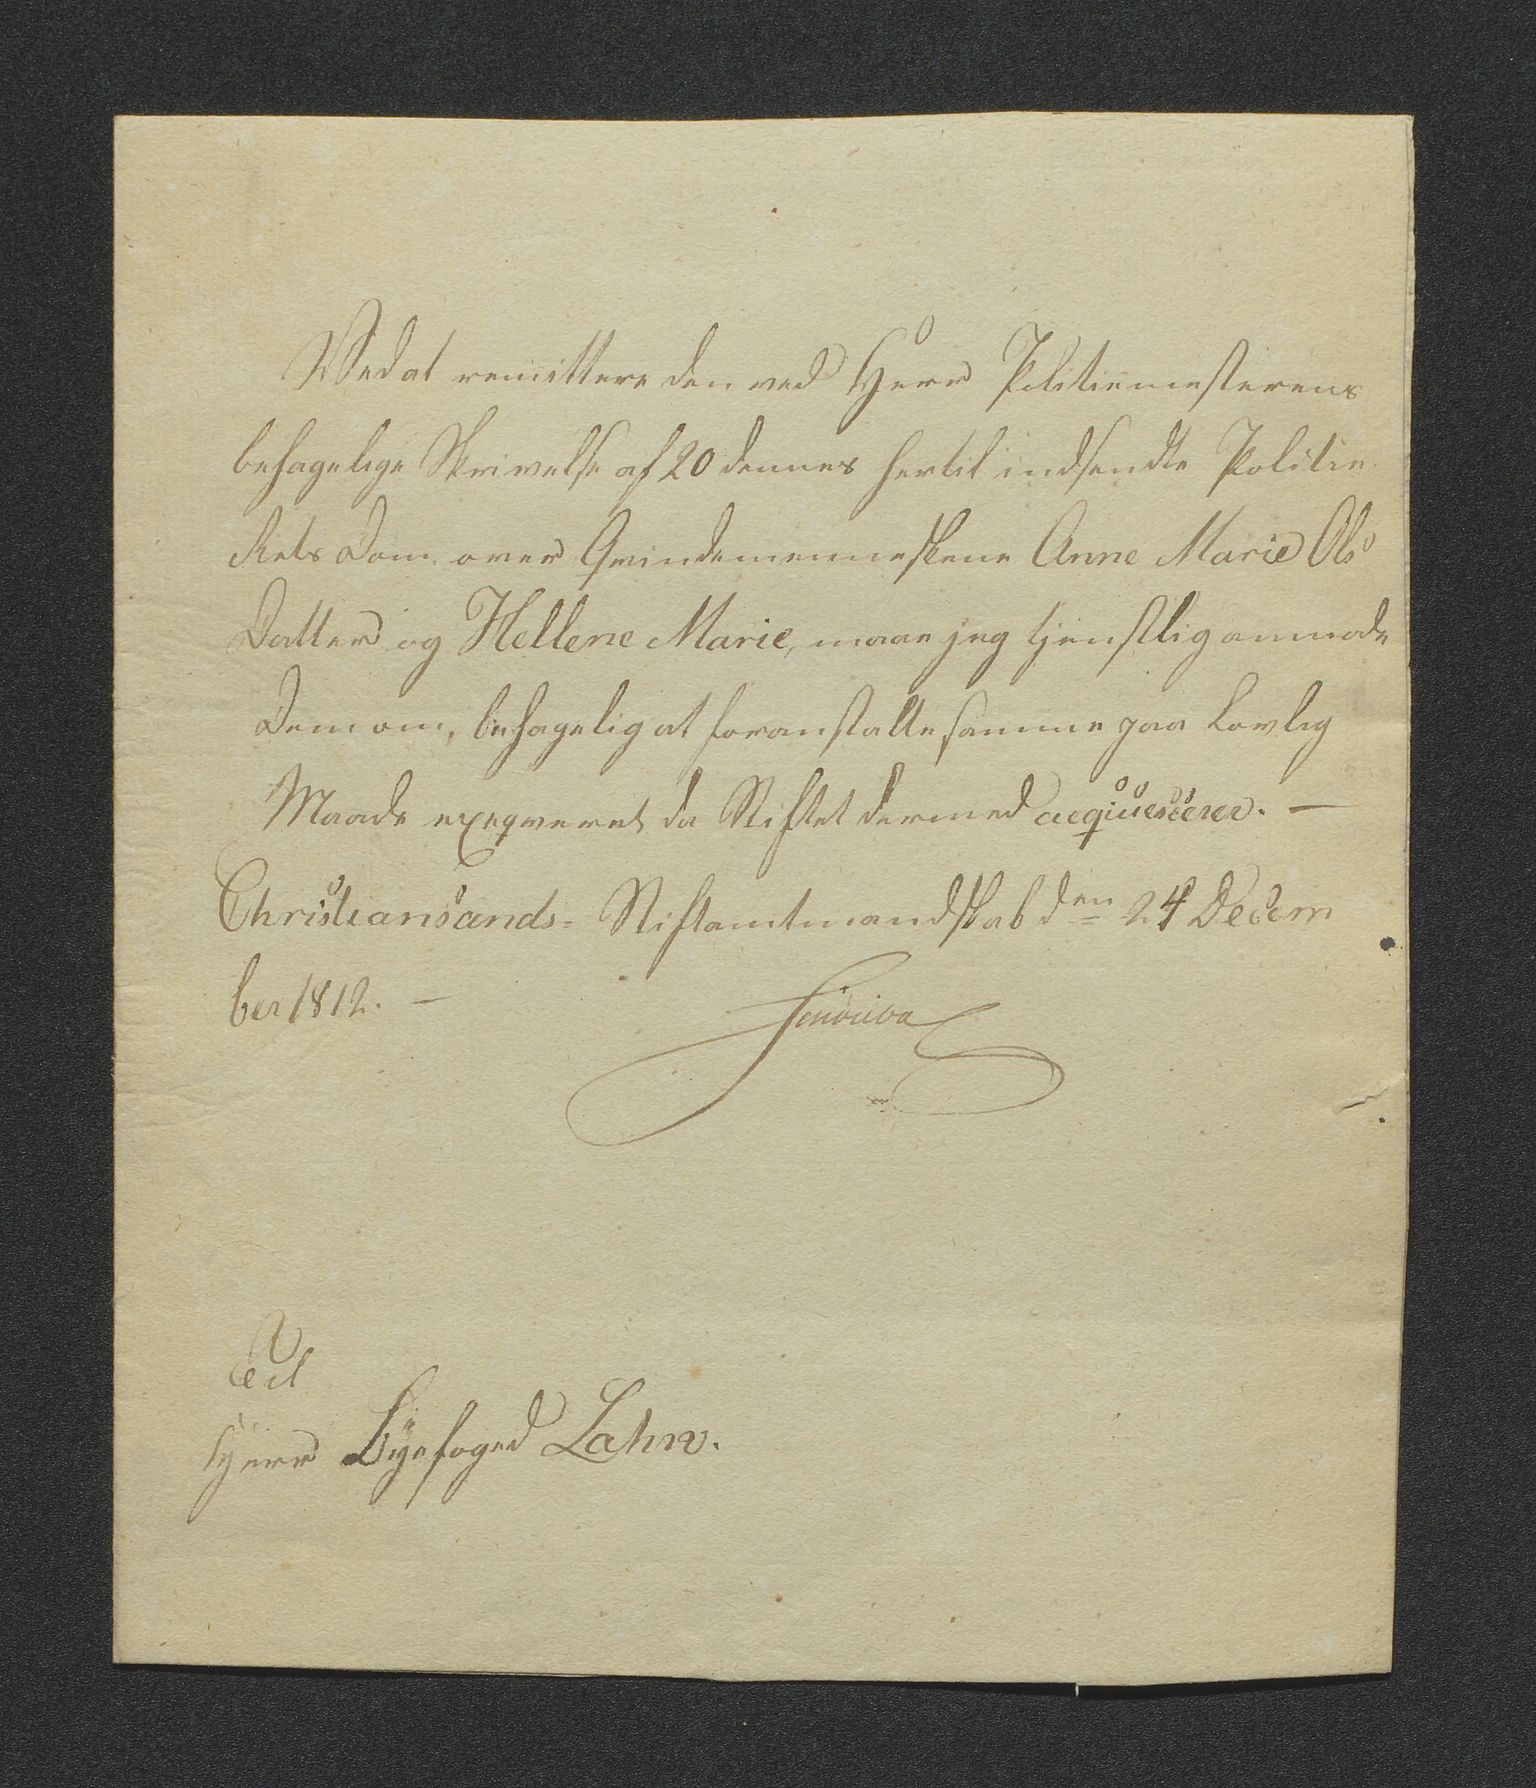 Ved at remittere den ved Herr Politiemesterens
behagelige Skrivelse af 20 dennes hertil indsendte Politie
Rets Dom over Qvindemenneskene Anne Marie Ols
Datter og Hellene Marie, maae jeg tjenstlig anmode
Dem om, behagelig at foranstalte samme paa Lovlig
Maade exeqveret da Stiftet dermed acqviescerer. —
Christiansands- Stiftamtmandskab den 24 Decem
ber 1812. —
Til
Herr Byefoged Lahn.